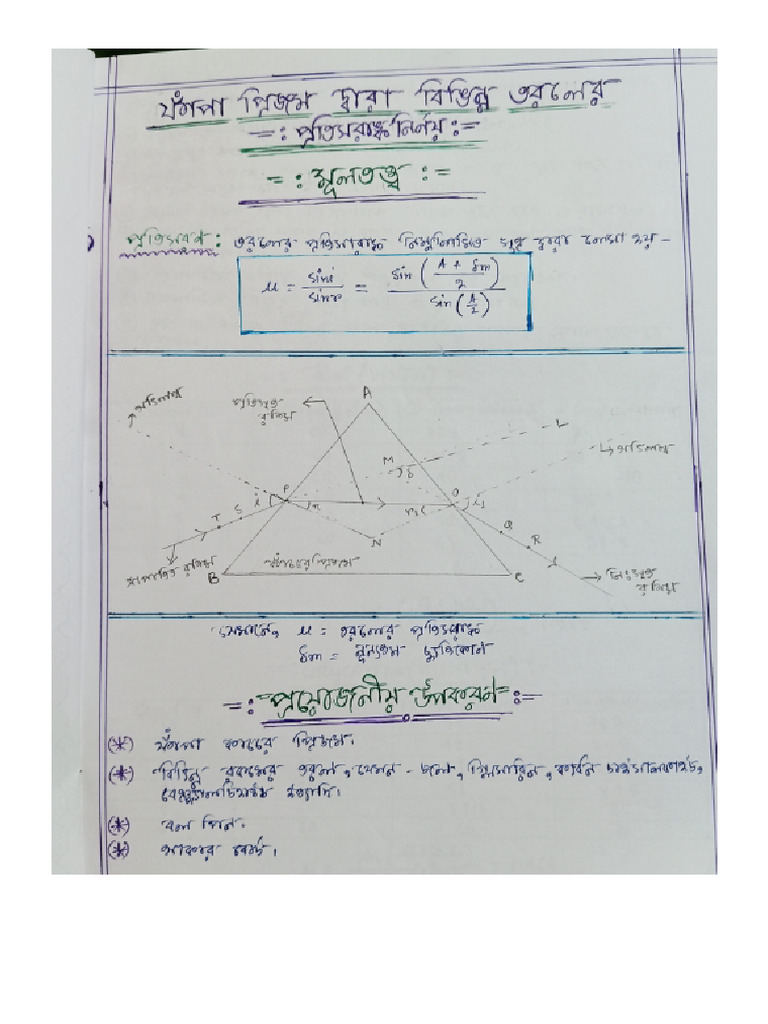 ফাঁপা প্রিজম দ্বারা বিভিন্ন তরলের
=: প্রতিসরাঙ্ক নির্ণয় :=
=: মূলতত্ত্ব :=
প্রতিসরণ : তরলের প্রতিসরাঙ্ক নিম্নলিখিত সূত্র দ্বারা লেখা হয় -
μ = sini/sinr = sin((A + δm)/2)/sin(A/2)
A
অভিলম্ব
প্রতিসৃত
রশ্মি
L
অভিলম্ব
M
δ
P
i
r1
r2
O
i2
T
S
N
Q
R
আপাতিত রশ্মি
B
কাঁচের প্রিজম
C
নিঃসৃত
রশ্মি
যেখানে, μ = তরলের প্রতিসরাঙ্ক
δm = ন্যূনতম চ্যুতিকোণ
=: প্রয়োজনীয় উপকরণ :=
(*) ফাঁপা কাচের প্রিজম।
(*) বিভিন্ন রকমের তরল, যেমন - জল, গ্লিসারিন, কার্বন ডাইসালফাইড,
ইত্যাদি।
(*) বল পিন।
(*) আঁকার বোর্ড।